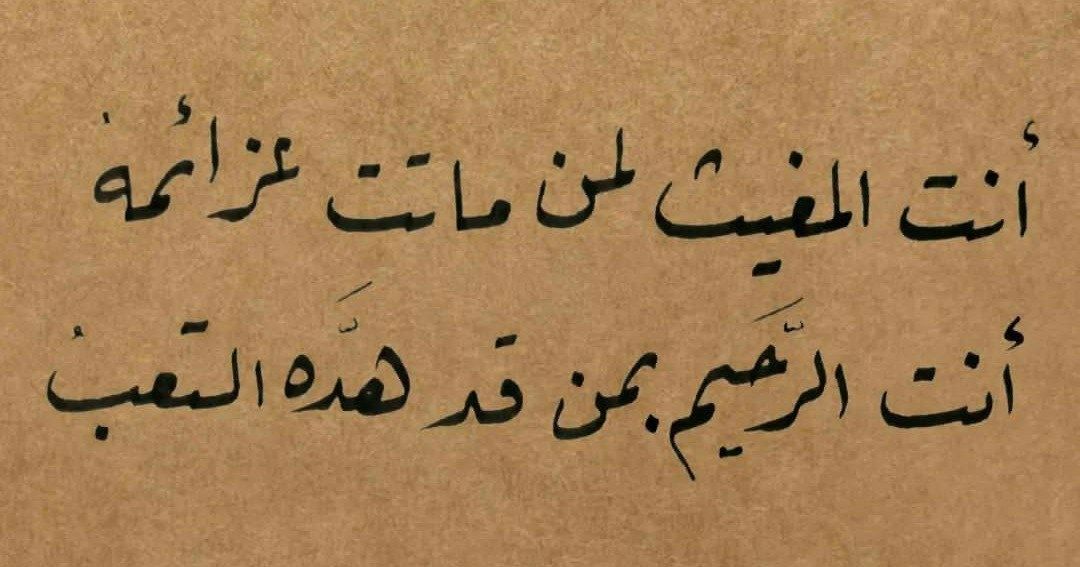 أنت المغيث لمن ماتت عزائمهُ
أنت الرَّحيم بمن قد هدَّه التعبُ